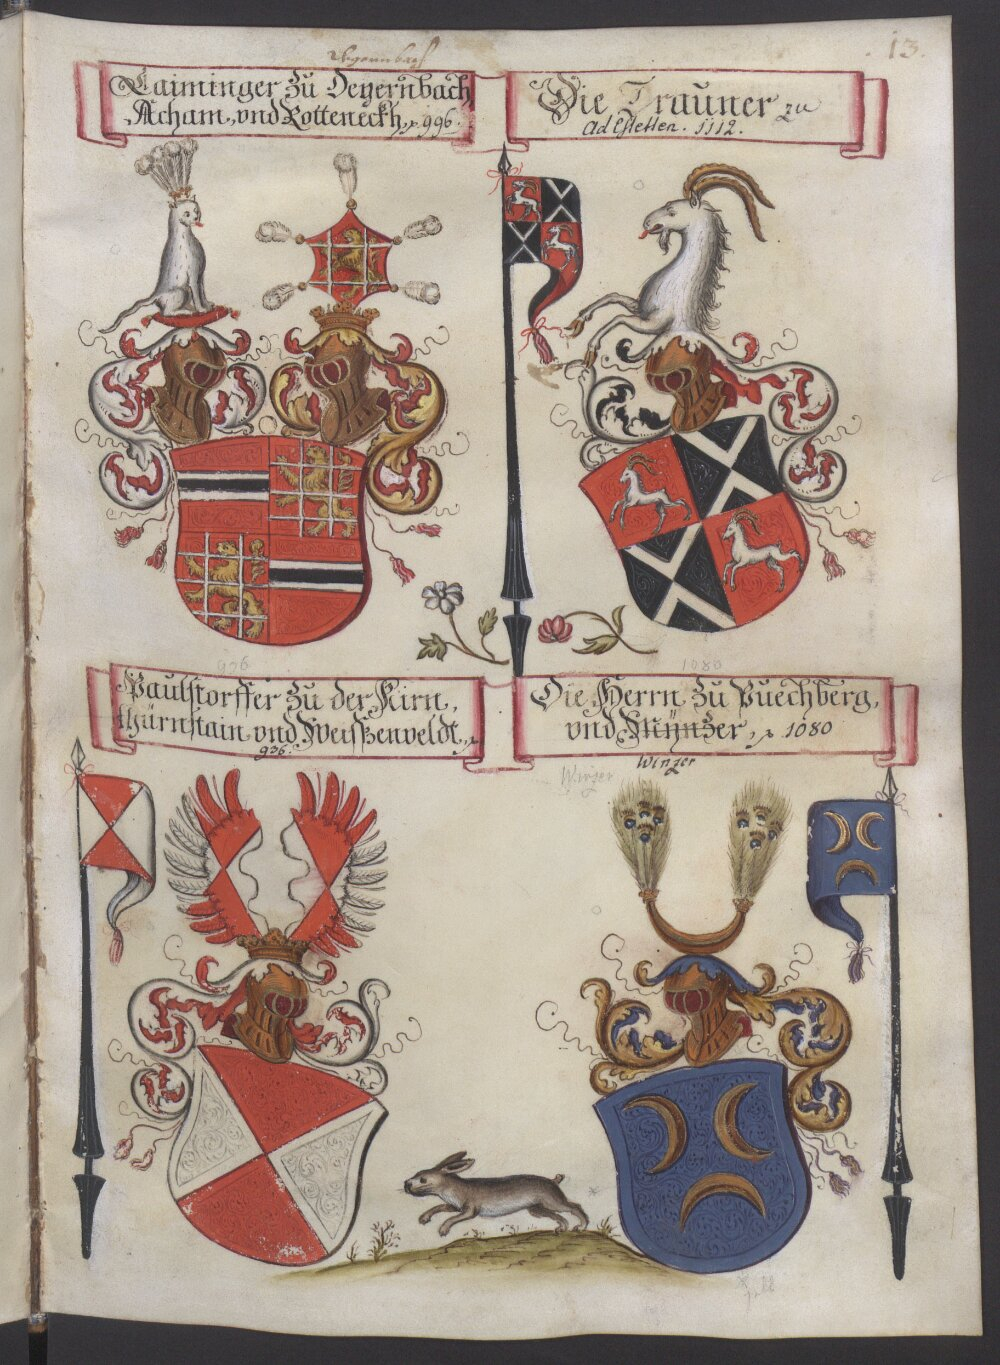 13.
Taiminger zu Deyernbach
Acham, und Rotteneckh, p. 996.
Die Trauner zu
Adlstetten. 1112.
996
1080
Paulstorffer zu der Kirn,
thürnstain und Weissenveldt, p.
936.
Die Herrn zu Puechberg,
und Zer, p. 1080
Winzer
Winzer